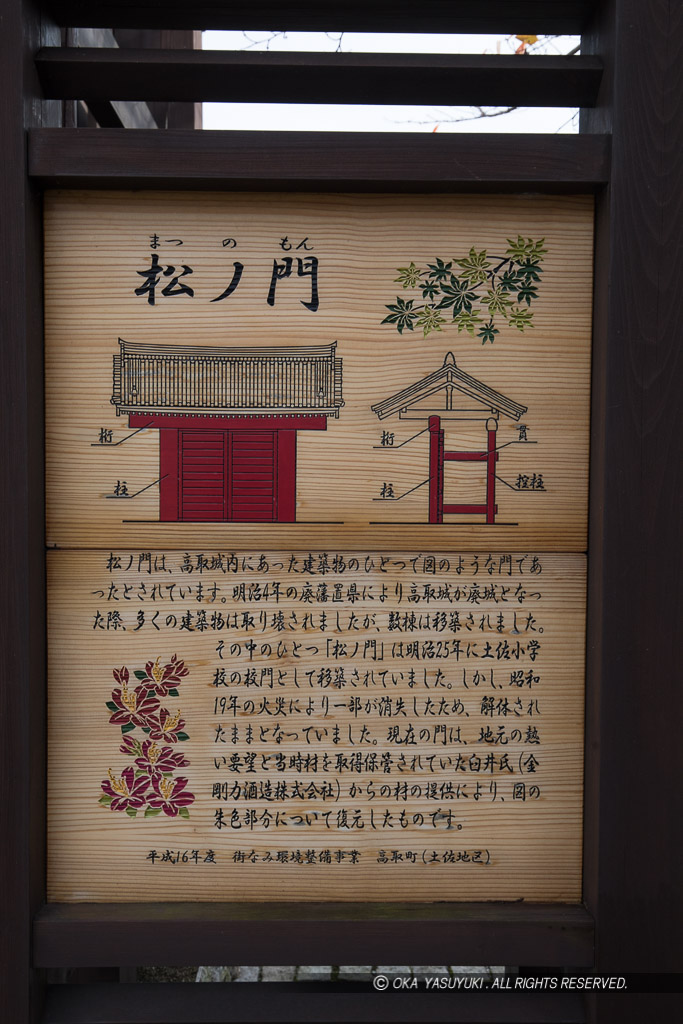 まつ の もん
松ノ門
桁
柱
桁
貫
柱
控柱
松ノ門は、高取城内にあった建築物のひとつで図のような門であ
ったとされています。明治4年の廃藩置県により高取城が廃城となっ
た際、多くの建築物は取り壊されましたが、数棟は移築されました。
その中のひとつ「松ノ門」は明治25年に土佐小学
校の校門として移築されていました。しかし、昭和
19年の火災により一部が消失したため、解体され
たままとなっていました。現在の門は、地元の熱
い要望と当時材を取得保管されていた臼井氏（金
剛力酒造株式会社）からの材の提供により、図の
朱色部分について復元したものです。
平成16年度 街なみ環境整備事業 高取町（土佐地区）
© OKA YASUYUKI. ALL RIGHTS RESERVED.